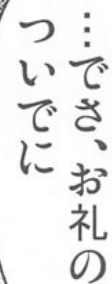 …でさ、お礼の
ついでに